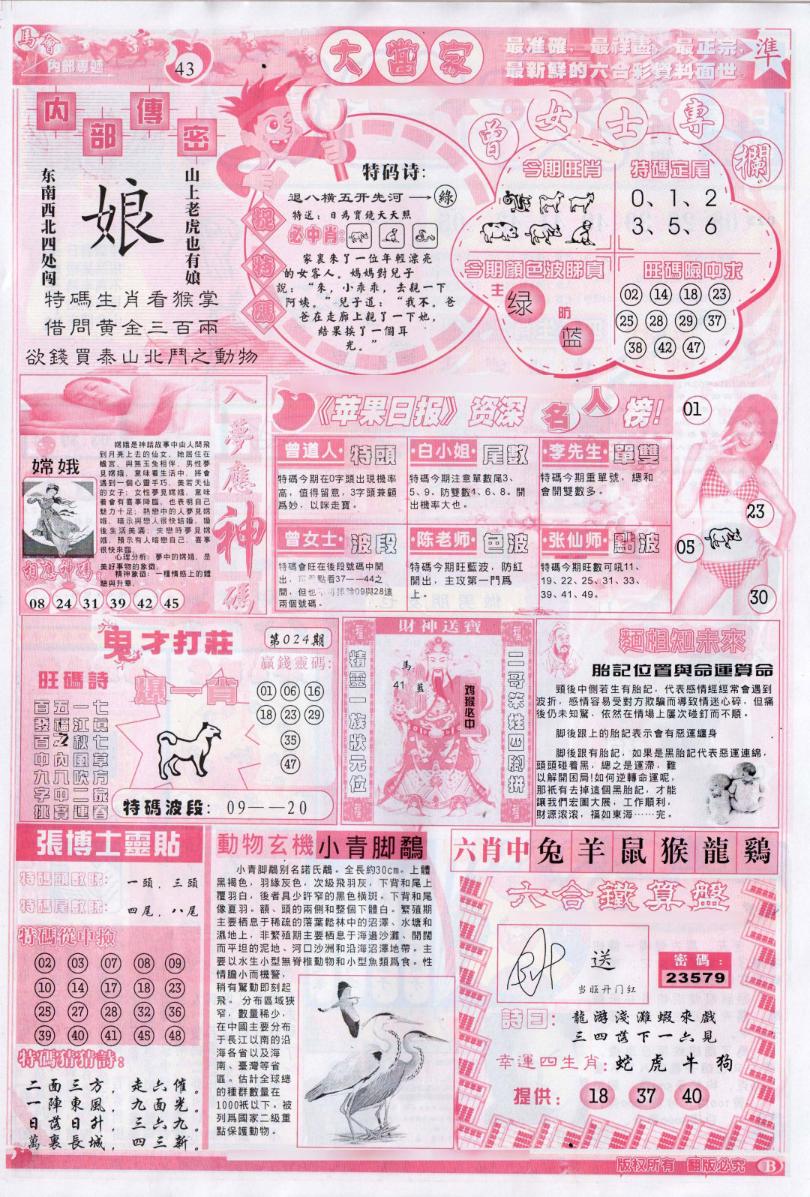 馬會
內部專遞
43
大當家
最准確，最祥盡，最正宗，
最新鮮的六合彩資料面世
準
内部傳密
东南西北四处闯
娘
山上老虎也有娘
特碼生肖看猴掌
借問黄金三百兩
欲錢買泰山北鬥之動物
特码诗:
退八横五开先河→綠
特送：日為寶鏡天天照
必中肖:
家裏来了一位年輕漂亮
的女客人。媽媽對兒子
説："来，小乖乖，去親一下
阿姨。"兒子道："我不。爸
爸在走廊上親了一下她，
結果挨了一個耳
光。"
曾女士專欄
今期旺肖
特碼定尾
0、1、2
3、5、6
今期顏色波睇真
主 绿
防 蓝
旺碼險中求
02 14 18 23
25 28 29 37
38 42 47
入夢應神碼
嫦娥
嫦娥是神話故事中由人間飛
到月亮上去的仙女，她居住在
蟾宮，與無玉兔相伴，男性夢
見嫦娥，意味着生活中，將會
遇到一個心靈手巧，美若天仙
的女子；女性夢見嫦娥，意味
着會有喜事降臨，也表明自己
魅力十足；熱戀中的人夢見嫦
娥，暗示與戀人很快結婚，婚
後生活美滿；失戀時夢見嫦
娥，預示有人暗戀自己，喜事
很快来臨。
心理分析：夢中的嫦娥，是
美好事物的象徵。
精神象徵：一種情感上的體
驗與升華。
相應神碼:
08 24 31 39 42 45
《苹果日报》资深名人榜!
曾道人·特頭
特碼今期在0字頭出現機率
高，值得留意，3字頭兼顧
爲妙，以咪走寶。
白小姐·尾數
特碼今期注意單數尾3、
5、9。防雙數4、6、8。開
出機率大也。
李先生·單雙
特碼今期重單號，總和
會開雙數多。
曾女士·波段
特碼會旺在後段號碼中開
點看37——44之
間，但也 09與28這
兩個號碼。
陈老师·色波
特碼今期旺藍波，防紅
開出，主攻第一門爲
上。
张仙师·點波
特碼今期旺數可吼11、
19、22、25、31、33、
39、41、49。
01
23
05
30
鬼才打莊
第024期
旺碼詩
百五一七
發福江莫
百之秋七
中內風草
九八吹方
字中二家
挑寶連春
爆一肖
贏錢靈碼:
01 06 16
18 23 29
35
47
特碼波段：09——20
財神送寶
精靈一族狀元位
馬
41
藍
鸡猴必中
二哥笨姓四脚拼
麵相知未來
胎記位置與命運算命
頸後中側若生有胎記，代表感情經經常會遇到
波折，感情容易受對方欺騙而導致情迷心碎，但痛
後仍未知驚，依然在情場上屢次碰釘而不順。
脚後跟上的胎記表示會有惡運纏身
脚後跟有胎記，如果是黑胎記代表惡運連綿，
頭頭碰着黑，總之是運滯，難
以解開困局!如何逆轉命運呢，
那衹有去掉這個黑胎記，才能
讓我們宏圖大展，工作順利，
財源滾滾，福如東海……完。
張博士靈貼
特碼頭數睇: 一頭，三頭
特碼尾數睇: 四尾，八尾
特碼從中揀
02 03 07 08 09
10 14 17 18 23
25 27 28 32 36
39 40 41 45 48
特碼猜猜詩:
二面三方，走六催。
一陣東風，九面光。
日落日升，三六九。
萬裏長城，四三新。
動物玄機 小青脚鷸
小青脚鷸别名諾氏鷸。全長約30cm。上體
黑褐色，羽緣灰色，次級飛羽灰，下背和尾上
覆羽白，後者具少許窄的黑色橫斑。下背和尾
像夏羽。額、頭的兩側和整個下體白。繁殖期
主要栖息于稀疏的落葉鬆林中的沼澤、水塘和
濕地上，非繁殖期主要栖息于海邊沙灘、開闊
而平坦的泥地、河口沙洲和沿海沼澤地帶。主
要以水生小型無脊椎動物和小型魚類爲食。性
情膽小而機警，
稍有驚動即刻起
飛。分布區域狹
窄，數量稀少，
在中國主要分布
于長江以南的沿
海各省以及海
南、臺灣等省
區。估計全球總
的種群數量在
1000衹以下，被
列爲國家二級重
點保護動物。
六肖中 兔羊鼠猴龍鷄
六合鐵算盤
送
当旺开门红
密碼:
23579
詩曰：龍游淺灘蝦來戲
三四落下一六見
幸運四生肖：蛇 虎 牛 狗
提供： 18 37 40
版权所有 翻版必究 B